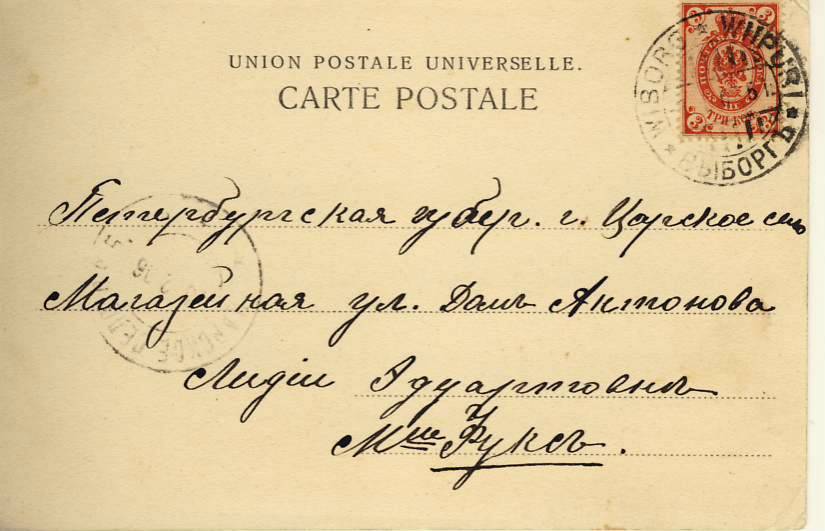 UNION POSTALE UNIVERSELLE.
CARTE POSTALE
WIBORG * WIIPURI * ВЫБОРГЪ *
3 3
ТРИ КОП.
3 3
Петербургская губер. г. Царское село
Магазейная ул. Домъ Антонова
Лидіи Эдуартовнѣ
Мше Фуксъ.